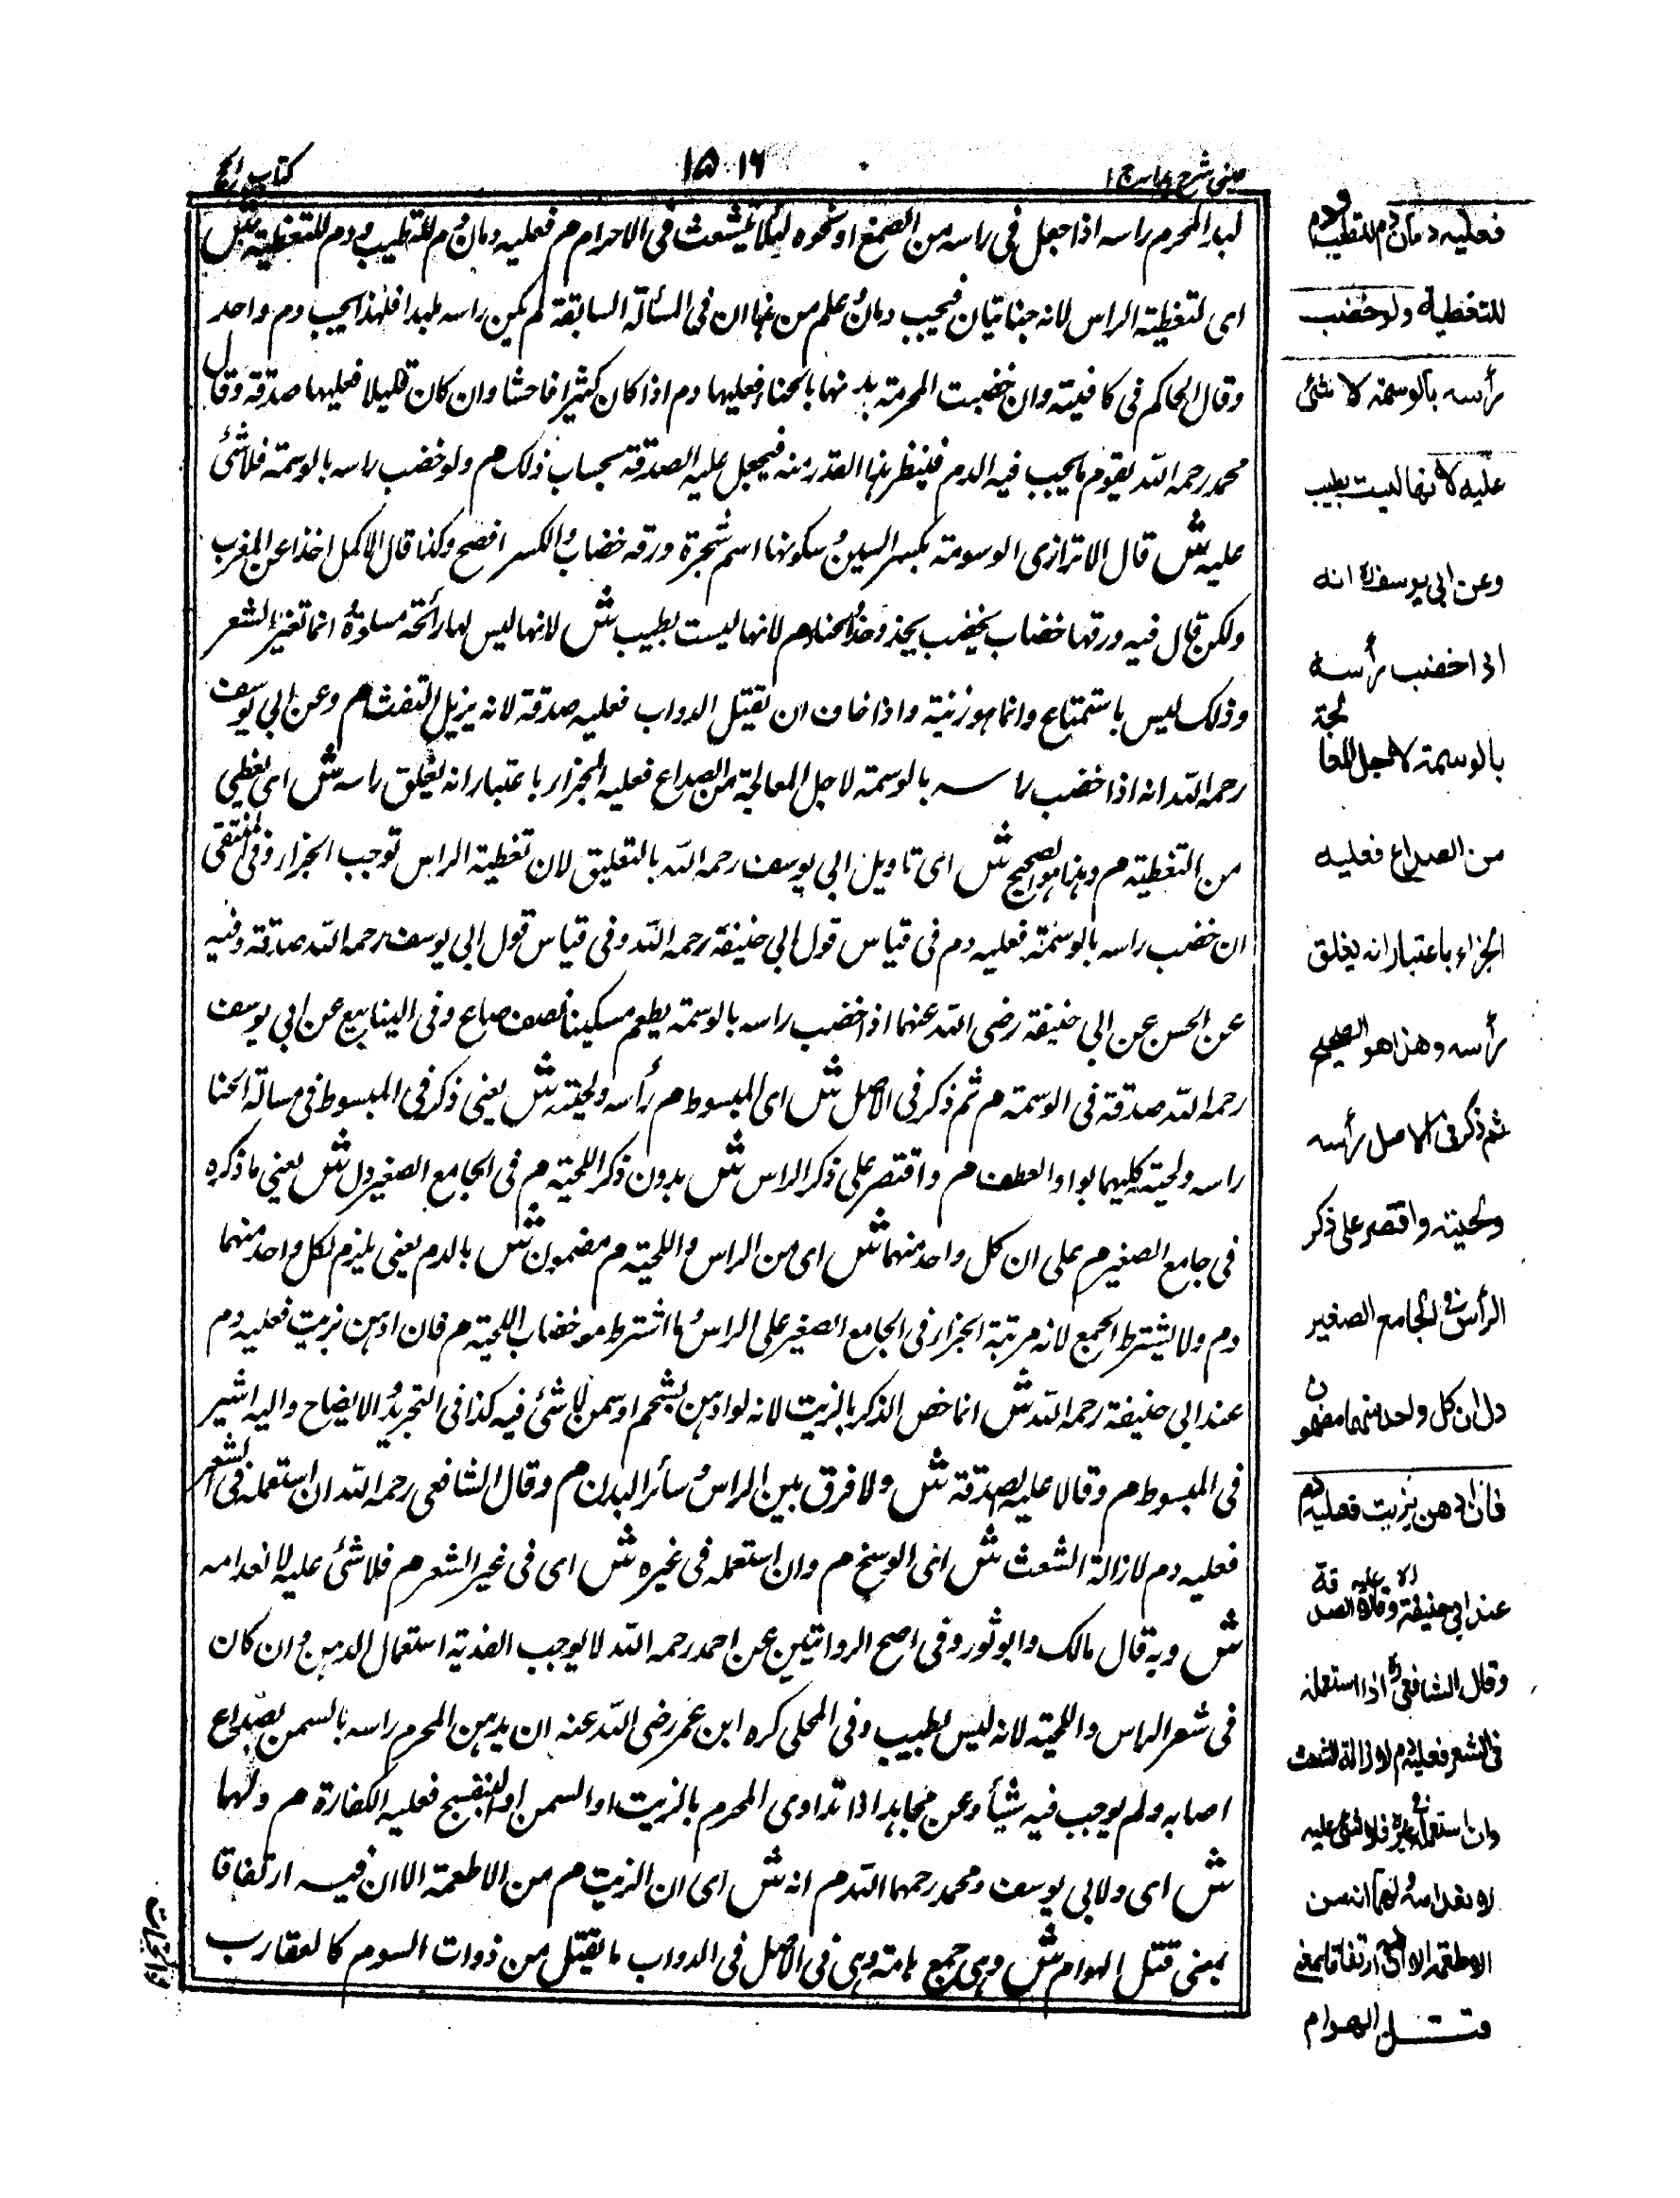 عینی شرح ہدایہ ج ١
١٥١٦
کتاب الحج
لبد المحرم راسه اذا جعل فی راسه من الصمغ او نحوه لئلا یتشعث فی الاحرام م فعلیه دمان دم للتطیب ودم للتغطیة ش
ای لتغطیة الراس لانه جنایتان فیجب دمان علم من هذا ان فی المسألة السابقة لم یکن راسه ملبدا فلهذا یجب دم واحد
وقال الحاکم فی کافیته وان خضبت المحرمة یدیها بالحناء فعلیها دم اذا کان کثیرا فاحشا وان کان قلیلا فعلیها صدقة وقال
محمد رحمه الله یقوم ما یجب فیه الدم فینظر هذا القدر منه فیجعل علیه الصدقة بحساب ذلک م ولو خضب راسه بالوسمة فلا شئ
علیه ش قال الاترازی الوسومة بکسر السین وسکونها اسم شجرة ورقه خضاب والکسر افصح وکذا قال الاکمل اخذا عن المغرب
ولکن قال فیه ورقها خضاب م لانها لیست بطیب ش لانها لیس لها رائحة مستلذة انما تغیر الشعر
وذلک لیس باستمتاع وانما هو زینة واذا خاف ان یقتل الدواب فعلیه صدقة لانه یزیل التفث م وعن ابی یوسف
رحمه الله انه اذا خضب راسه بالوسمة لاجل المعالجة من الصداع فعلیه الجزاء باعتبار انه یغلق راسه ش ای یغطی
من التغطیة م وهذا هو الصحیح ش ای تاویل ابی یوسف رحمه الله بالتغلیق لان تغطیة الراس توجب الجزاء وفی المنتقی
ان خضب راسه بالوسمة فعلیه دم فی قیاس قول ابی حنیفة رحمه الله وفی قیاس قول ابی یوسف رحمه الله صدقة وفیه
عن الحسن عن ابی حنیفة رضی الله عنهما اذا خضب راسه بالوسمة یطعم مسکینا نصف صاع وفی الینابیع عن ابی یوسف
رحمه الله صدقة فی الوسمة م ثم ذکر فی الاصل ش ای المبسوط م رأسه ولحیته ش یعنی ذکر فی المبسوط فی مسالة الحنا
راسه ولحیته کلیهما بواو العطف م واقتصر علی ذکر الراس ش بدون ذکر اللحیة م فی الجامع الصغیر دل ش یعنی ما ذکره
فی جامع الصغیر م علی ان کل واحد منهما ش ای من الراس واللحیة م مضمون ش بالدم یعنی یلزم لکل واحد منهما
دم ولا یشترط الجمع لانه مرتبة الجزاء فی الجامع الصغیر علی الراس وما اشترط مع خضاب اللحیة م فان ادهن بزیت فعلیه دم
عند ابی حنیفة رحمه الله ش انما خص الذکر بالزیت لانه لو ادهن بشحم او سمن لا شئ فیه کذا فی التجرید والایضاح والیه اشیر
فی المبسوط م وقالا علیه الصدقة ش ولا فرق بین الراس وسائر البدن م وقال الشافعی رحمه الله ان استعمله فی الشعر
فعلیه دم لازالة الشعث ش ای الوسخ م وان استعمله فی غیره ش ای فی غیر الشعر م فلا شئ علیه لانعدامه
ش وبه قال مالک وابو ثور وفی اصح الروایتین عن احمد رحمه الله لا یوجب الفدیة استعمال الدهن وان کان
فی شعر الراس واللحیة لانه لیس بطیب وفی المحلی کره ابن عمر رضی الله عنه ان یدهن المحرم راسه بالسمن لصداع
اصابه ولم یوجب فیه شیأ وعن مجاهد اذا تداوی المحرم بالزیت او السمن او البنفسج فعلیه الکفارة م ولهما
ش ای ولابی یوسف ومحمد رحمهما الله م انه ش ای ان الزیت م من الاطعمة الا ان فیه ارتفاقا
بمعنی قتل الهوام ش وهی جمع هامة وهی فی الاصل فی الدواب ما یقتل من ذوات السوم کالعقارب
فعلیه دمان دم للتطیب ودم
للتغطیة ولو خضب
رأسه بالوسمة لا شئ
علیه لانها لیست بطیب
وعن ابی یوسف رح انه
اذا خضب رأسه
بالوسمة لاجل المعالجة
من الصداع فعلیه
الجزاء باعتبار انه یغلق
رأسه وهذا هو الصحیح
ثم ذکر فی الاصل رأسه
ولحیته واقتصر علی ذکر
الرأس فی الجامع الصغیر
دل ان کل واحد منهما مضمون
فان ادهن بزیت فعلیه دم
عند ابی حنیفة وقالا علیه الصدقة
وقال الشافعی رح اذا استعمله
فی الشعر فعلیه دم لازالة الشعث
وان استعمله فی غیره فلا شئ علیه
لانعدامه ولهما انه من
الاطعمة الا ان فیه ارتفاقا بمعنی
قتل الهوام